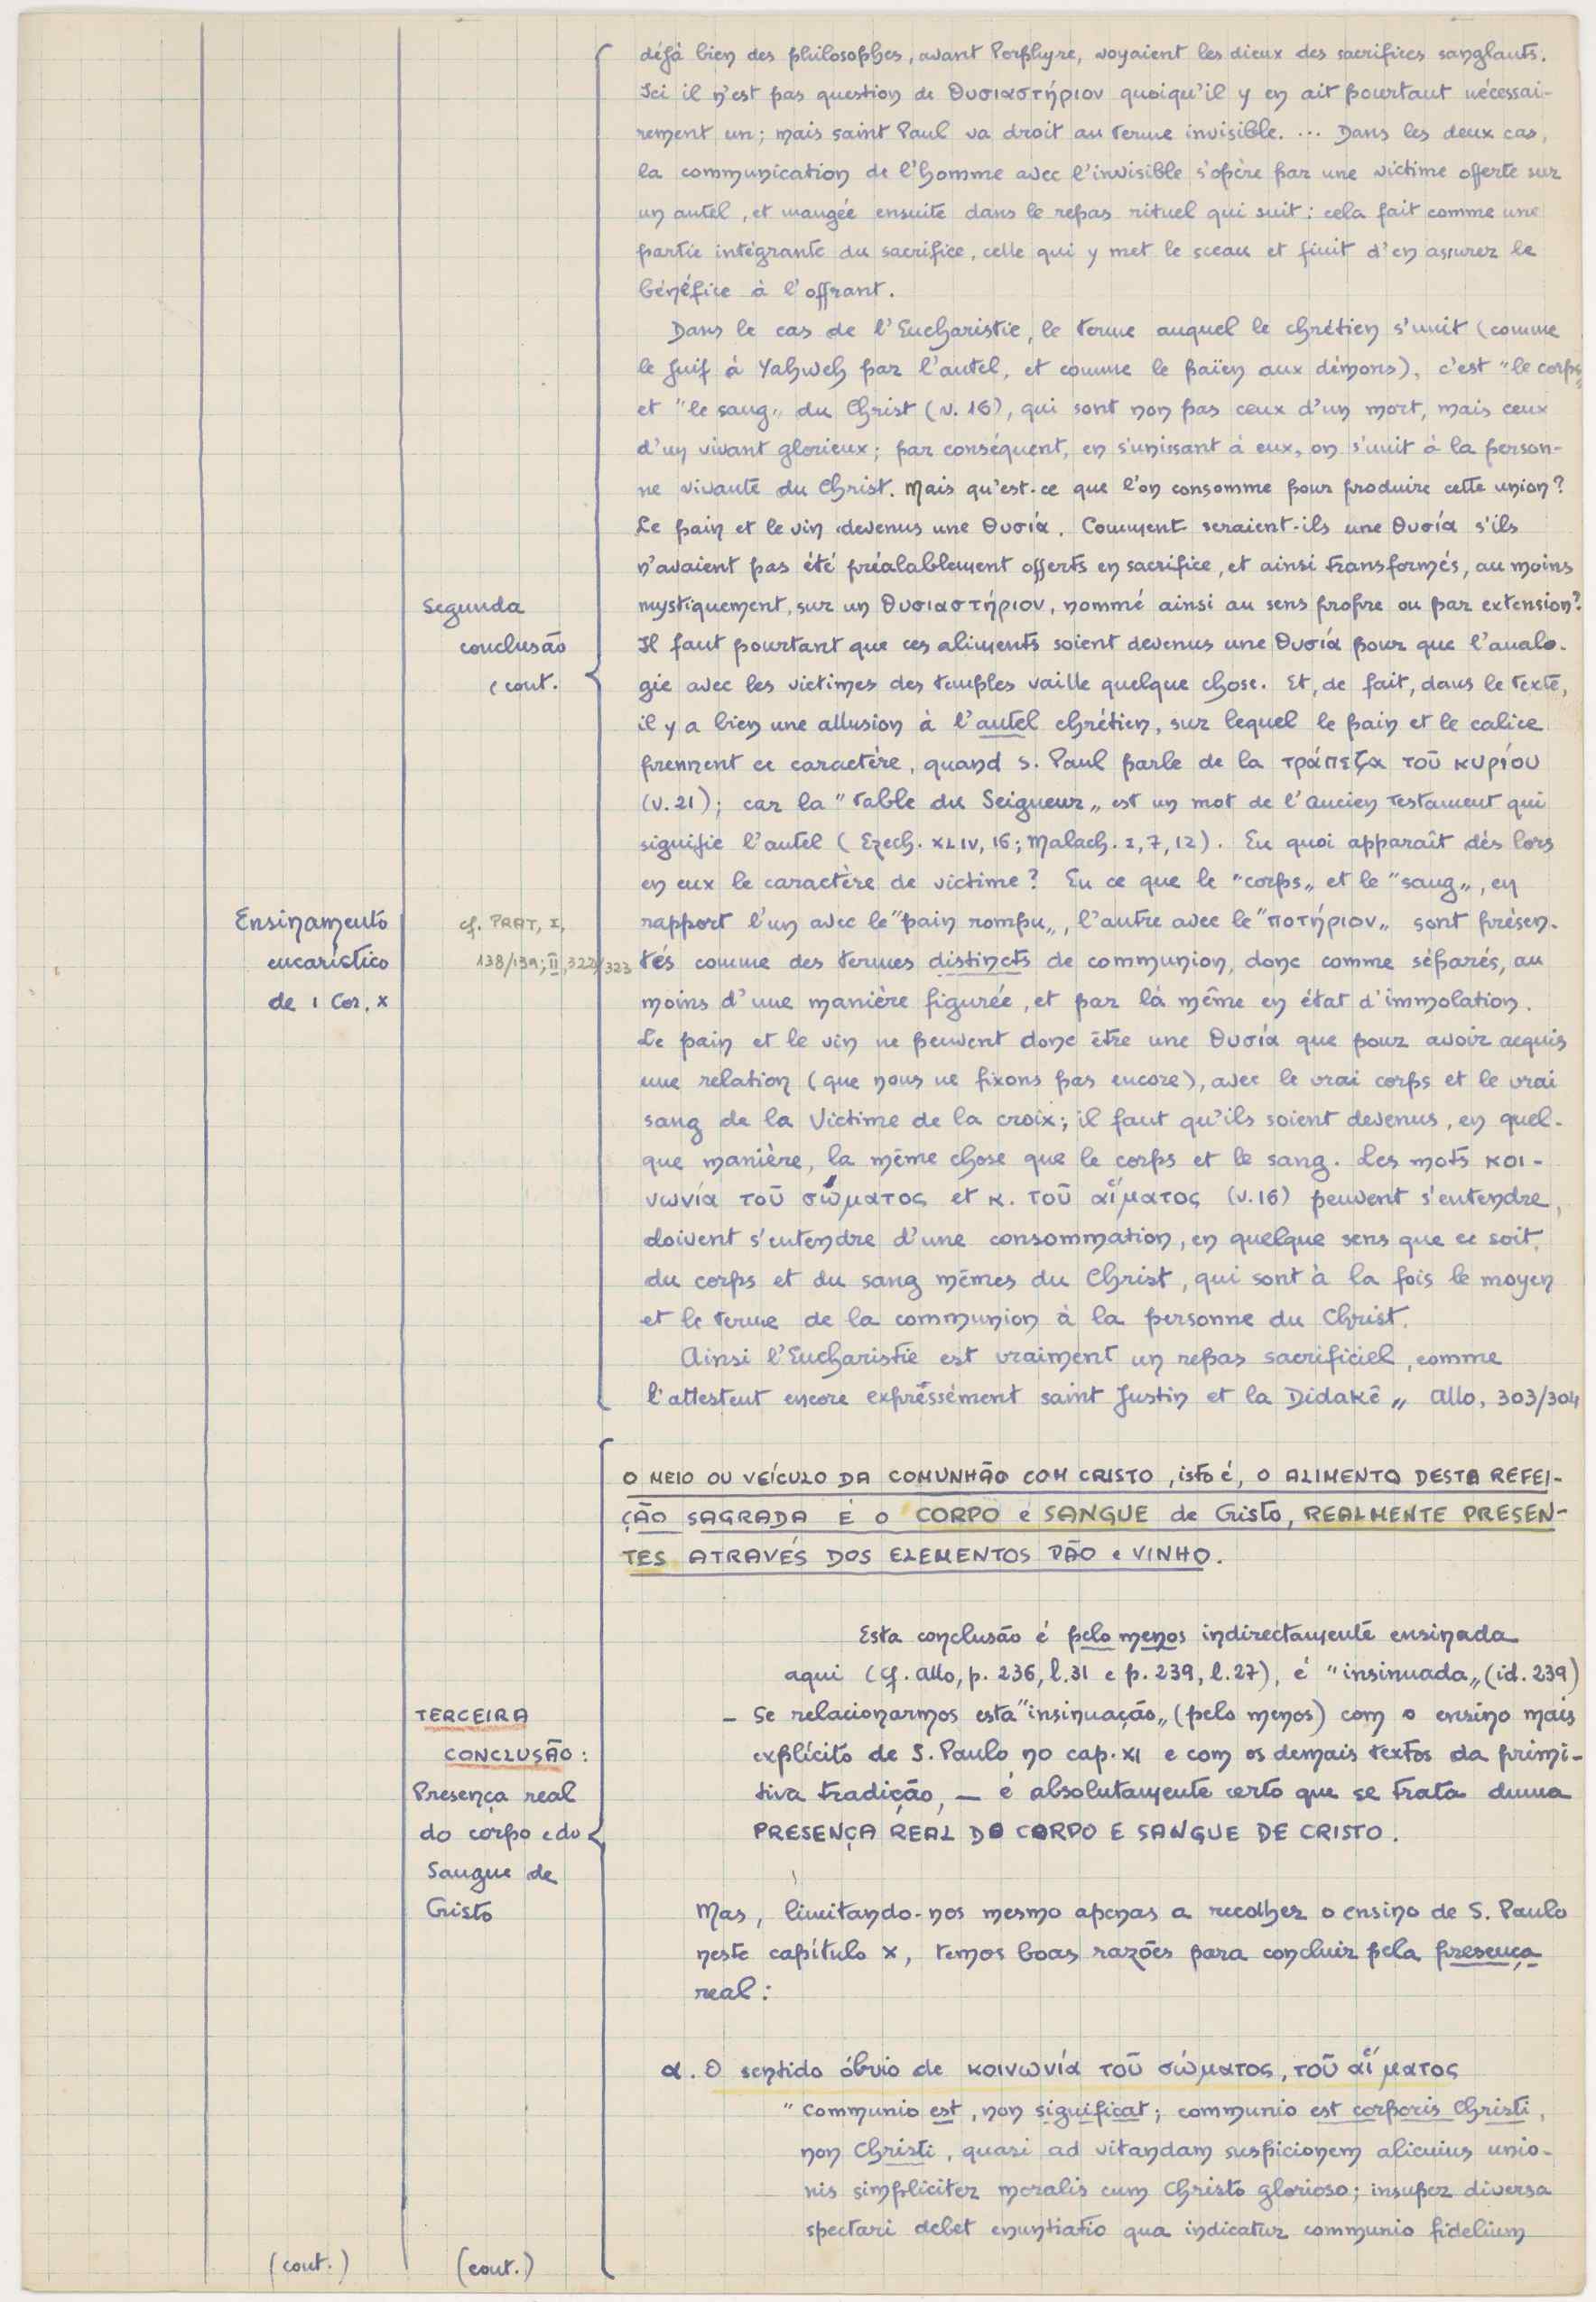 déjà bien des philosophes, avant Porphyre, voyaient les dieux des sacrifices sanglants.
Ici il n'est pas question de θυσιαστήριον quoiqu'il y en ait pourtant nécessai-
rement un; mais saint Paul va droit au terme invisible. ... Dans les deux cas,
la communication de l'homme avec l'invisible s'opère par une victime offerte sur
un autel, et mangée ensuite dans le repas rituel qui suit: cela fait comme une
partie intégrante du sacrifice, celle qui y met le sceau et finit d'en assurer le
bénéfice à l'offrant.
Dans le cas de l'Eucharistie, le terme auquel le chrétien s'unit (comme
le juif à Yahweh par l'autel, et comme le païen aux démons), c'est "le corps"
et "le sang" du Christ (v. 16), qui sont non pas ceux d'un mort, mais ceux
d'un vivant glorieux; par conséquent, en s'unissant à eux, on s'unit à la person-
ne vivante du Christ. Mais qu'est-ce que l'on consomme pour produire cette union?
Le pain et le vin devenus une θυσία. Comment seraient-ils une θυσία s'ils
n'avaient pas été préalablement offerts en sacrifice, et ainsi transformés, au moins
mystiquement, sur un θυσιαστήριον, nommé ainsi au sens propre ou par extension?
Il faut pourtant que ces aliments soient devenus une θυσία pour que l'analo-
gie avec les victimes des temples vaille quelque chose. Et, de fait, dans le texte,
il y a bien une allusion à l'autel chrétien, sur lequel le pain et le calice
prennent ce caractère, quand S. Paul parle de la τράπεζα τοῦ κυρίου
(v. 21); car la "table du Seigneur" est un mot de l'Ancien Testament qui
signifie l'autel (Ezech. XLIV, 16; Malach. I, 7, 12). En quoi apparaît dès lors
en eux le caractère de victime? En ce que le "corps" et le "sang", en
rapport l'un avec le "pain rompu", l'autre avec le "ποτήριον" sont présen-
tés comme des termes distincts de communion, donc comme séparés, au
moins d'une manière figurée, et par là même en état d'immolation.
Le pain et le vin ne peuvent donc être une θυσία que pour avoir acquis
une relation (que nous ne fixons pas encore), avec le vrai corps et le vrai
sang de la Victime de la croix; il faut qu'ils soient devenus, en quel-
que manière, la même chose que le corps et le sang. Les mots κοι-
νωνία τοῦ σώματος et κ. τοῦ αἵματος (v. 16) peuvent s'entendre,
doivent s'entendre d'une consommation, en quelque sens que ce soit,
du corps et du sang mêmes du Christ, qui sont à la fois le moyen
et le terme de la communion à la personne du Christ.
Ainsi l'Eucharistie est vraiment un repas sacrificiel, comme
l'attestent encore expressément saint Justin et la Didakê" Allo, 303/304
Segunda
conclusão
(cont.
Ensinamento
eucarístico
de 1 Cor. X
cf. PRAT, I,
138/139; II, 322/323
O MEIO OU VEÍCULO DA COMUNHÃO COM CRISTO, isto é, O ALIMENTO DESTA REFEI-
ÇÃO SAGRADA É O CORPO e SANGUE de Cristo, REALMENTE PRESEN-
TES ATRAVÉS DOS ELEMENTOS PÃO e VINHO.
Esta conclusão é pelo menos indirectamente ensinada
aqui (cf. Allo, p. 236, l. 31 e p. 239, l. 27), é "insinuada" (id. 239)
– Se relacionarmos esta "insinuação" (pelo menos) com o ensino mais
explícito de S. Paulo no cap. XI e com os demais textos da primi-
tiva tradição, — é absolutamente certo que se trata duma
PRESENÇA REAL DO CORPO E SANGUE DE CRISTO.
TERCEIRA
CONCLUSÃO:
Presença real
do corpo e do
Sangue de
Cristo
Mas, limitando-nos mesmo apenas a recolher o ensino de S. Paulo
neste capítulo X, temos boas razões para concluir pela presença
real:
α. O sentido óbvio de κοινωνία τοῦ σώματος, τοῦ αἵματος
"Communio est, non significat; communio est corporis Christi,
non Christi, quasi ad vitandam suspicionem alicuius unio-
nis simpliciter moralis cum Christo glorioso; insuper diversa
spectari debet enuntiatio qua indicatur communio fidelium
(cont.)
(cont.)